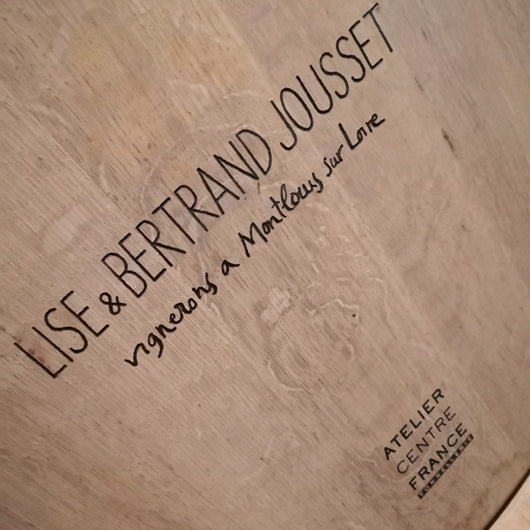 LISE & BERTRAND JOUSSET
vignerons a Montlouis sur Loire
ATELIER
CENTRE
FRANCE
TONNELLERIE